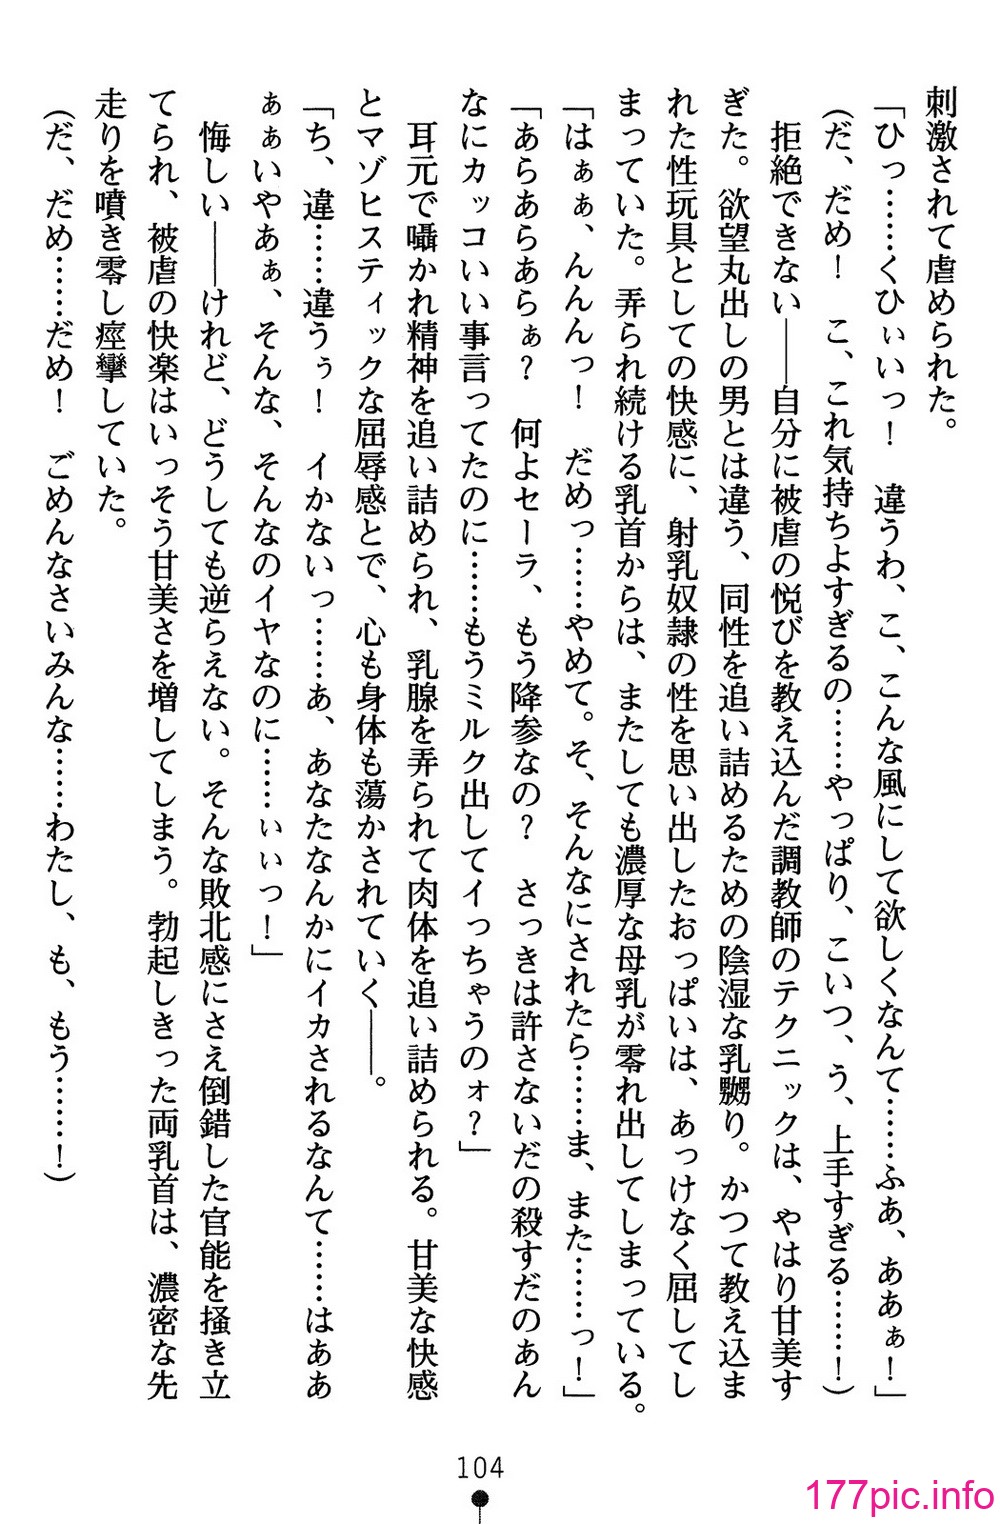 刺激されて虐められた。
「ひっ……くひぃいっ！　違うわ、こ、こんな風にして欲しくなんて……ふあ、ああぁ！」
(だ、だめ！　こ、これ気持ちよすぎるの……やっぱり、こいつ、う、上手すぎる……！)
　拒絶できない――自分に被虐の悦びを教え込んだ調教師のテクニックは、やはり甘美す
ぎた。欲望丸出しの男とは違う、同性を追い詰めるための陰湿な乳嬲り。かつて教え込ま
れた性玩具としての快感に、射乳奴隷の性を思い出したおっぱいは、あっけなく屈してし
まっていた。弄られ続ける乳首からは、またしても濃厚な母乳が零れ出してしまっている。
「はぁぁ、んんんっ！　だめっ……やめて。そ、そんなにされたら……ま、また……っ！」
「あらあらあらぁ？　何よセーラ、もう降参なの？　さっきは許さないだの殺すだのあん
なにカッコいい事言ってたのに……もうミルク出してイっちゃうのォ？」
　耳元で囁かれ精神を追い詰められ、乳腺を弄られて肉体を追い詰められる。甘美な快感
とマゾヒスティックな屈辱感とで、心も身体も蕩かされていく――。
「ち、違……違うぅ！　イかないっ……あ、あなたなんかにイカされるなんて……はああ
ぁぁいやあぁ、そんな、そんなのイヤなのに……ぃぃっ！」
　悔しい――けれど、どうしても逆らえない。そんな敗北感にさえ倒錯した官能を掻き立
てられ、被虐の快楽はいっそう甘美さを増してしまう。勃起しきった両乳首は、濃密な先
走りを噴き零し痙攣していた。
(だ、だめ……だめ！　ごめんなさいみんな……わたし、も、もう……！)
104
177pic.info